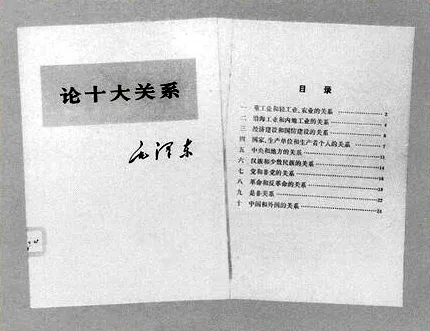 论十大关系
毛泽东
目录
一 重工业和轻工业、农业的关系 2
二 沿海工业和内地工业的关系 4
三 经济建设和国防建设的关系 6
四 国家、生产单位和生产者个人的关系 7
五 中央和地方的关系
六 汉族和少数民族的关系
七 党和非党的关系
八 革命和反革命的关系
九 是非关系
十 中国和外国的关系